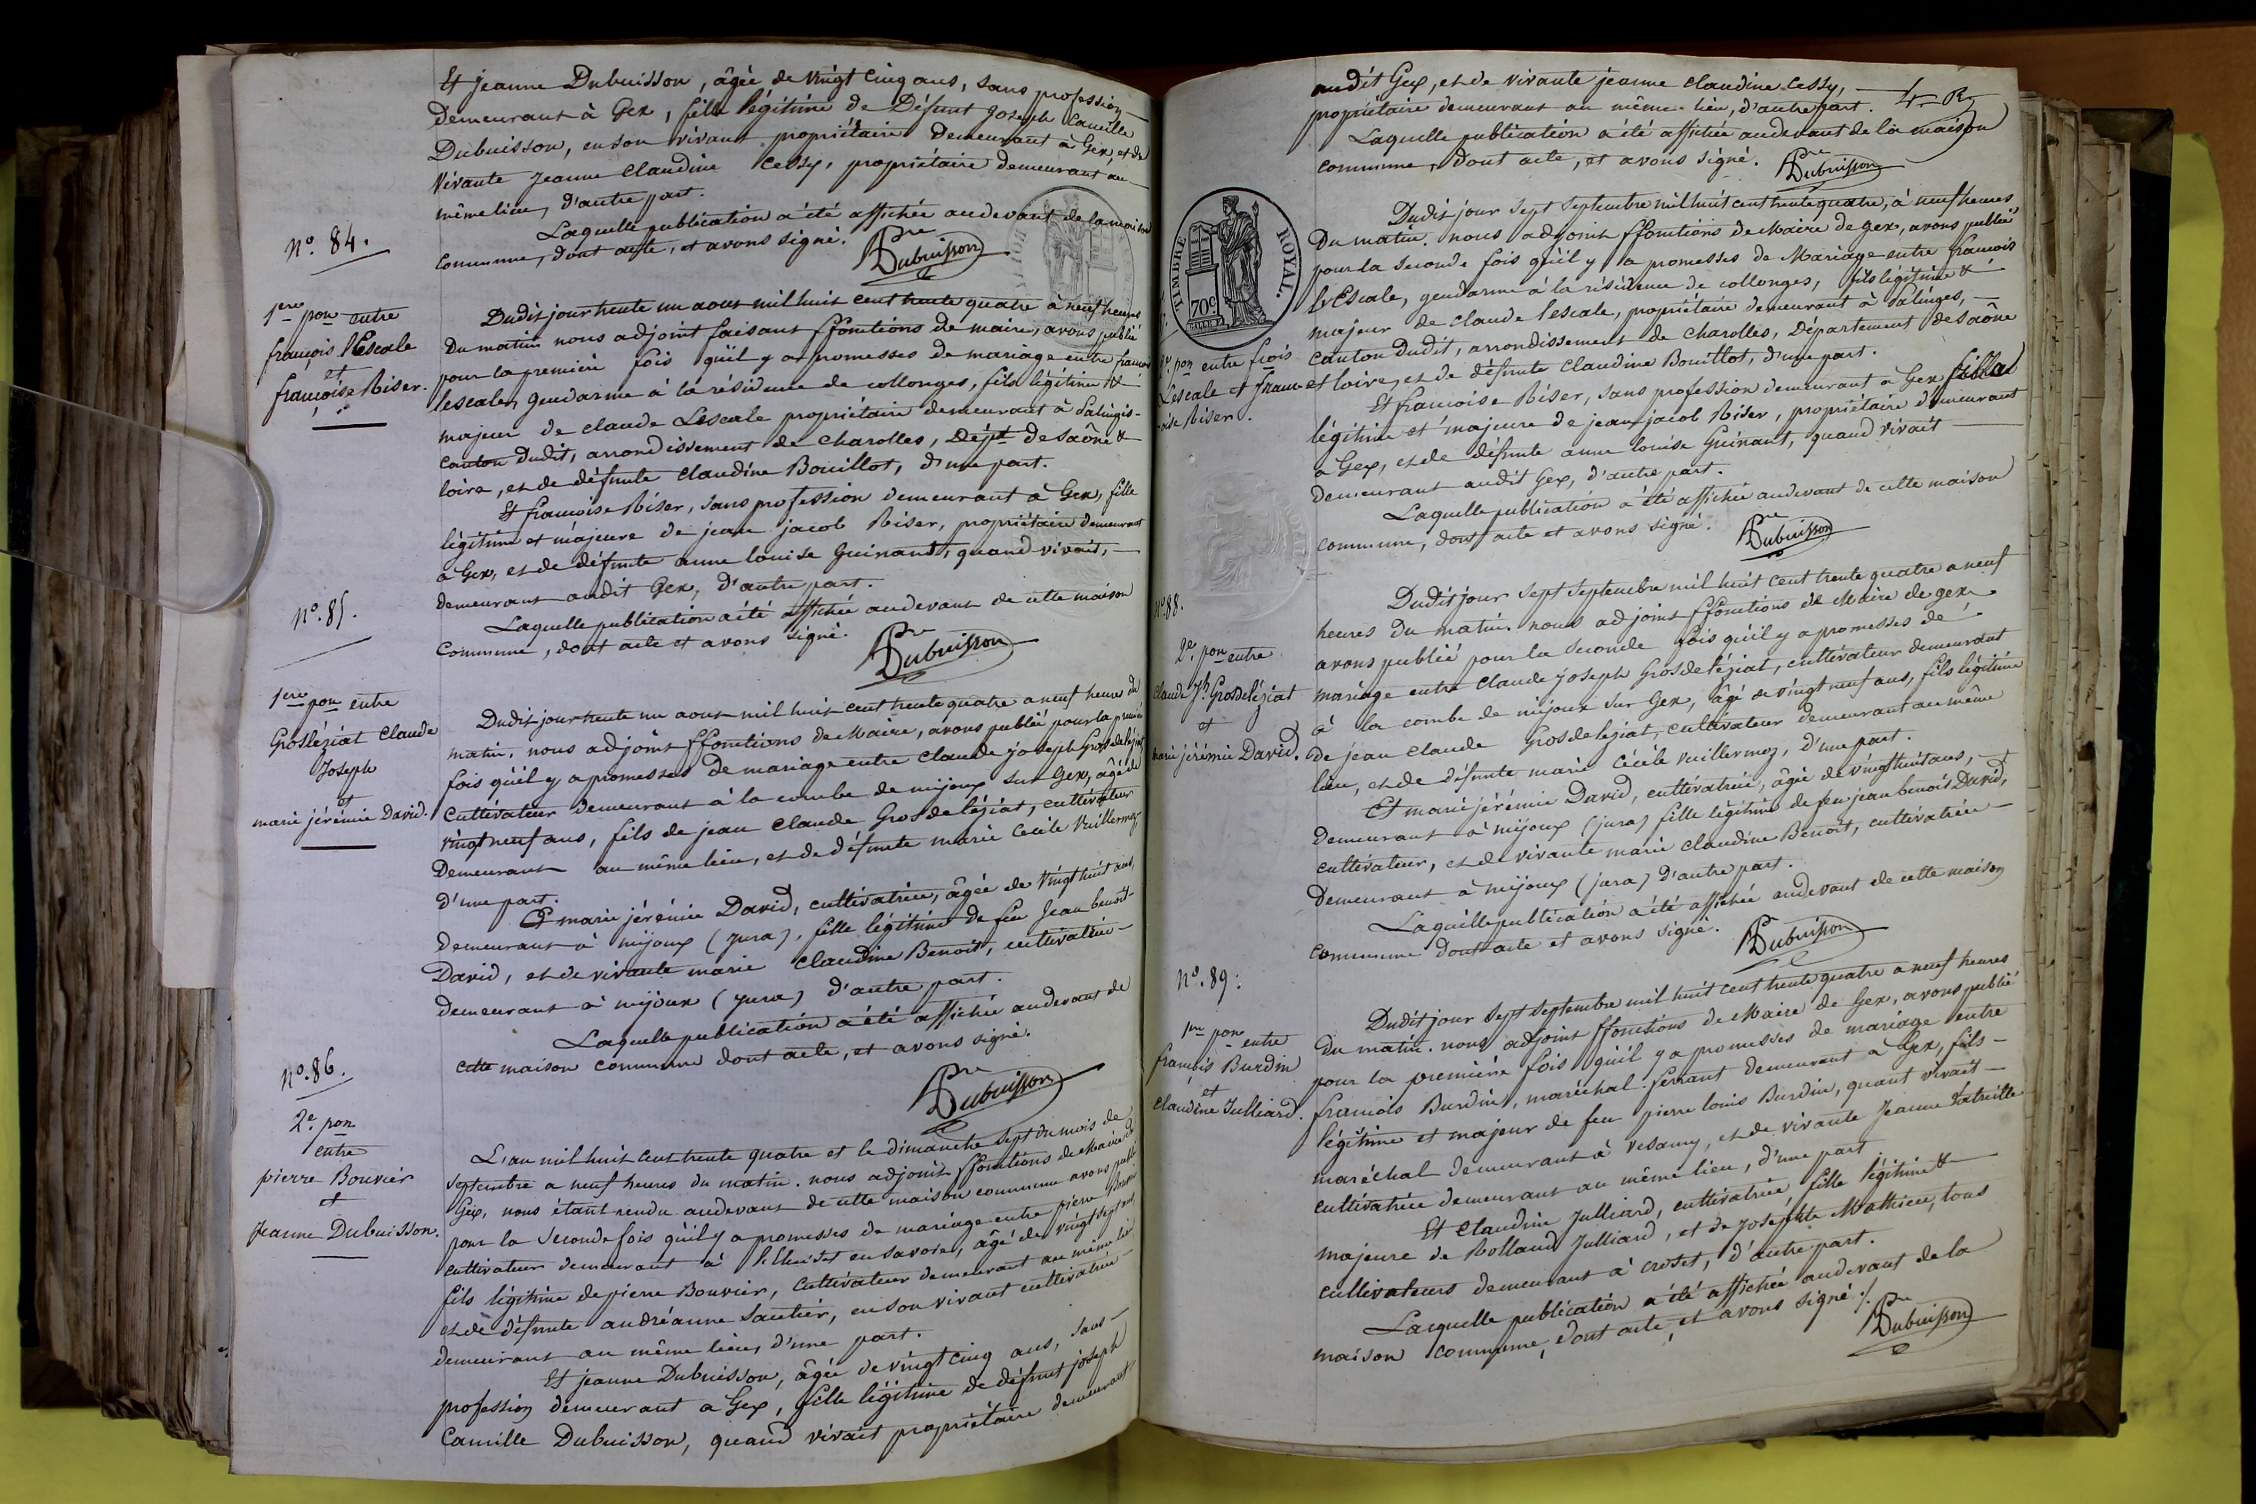 Et jeanne Dubuisson, âgée de vingt cinq ans, sans profession
demeurant à Gex, fille légitime de Défunt Joseph Camille
Dubuisson, en son vivant propriétaire demeurant à Gex, et de
vivante Jeanne Claudine Cessy, propriétaire demeurant au
même lieu, d'autre part.
Laquelle publication a été affichée audevant de la maison
commune, dont acte, et avons signé.
Dubuisson
No. 84.
1ere pon entre
françois l'Escale
et
françoise Riser.
Dudit jour trente un aout mil huit cent trente quatre à neuf heures
du matin nous adjoint faisant ffonctions de maire, avons publié
pour la première fois qu'il y a promesses de mariage entre françois
lescale, gendarme à la résidence de collonges, fils légitime &
majeur de claude Lescale propriétaire demeurant à Palingis-
canton dudit, arrondissement de Charolles, Dépt de Saône &
loire, et de défunte Claudine Bouillot, d'une part.
Et françoise Riser, sans profession demeurant à Gex, fille
légitime et majeure de jean jacob Riser, propriétaire demeurant
à Gex, et de défunte anne louise Guinant, quand vivait,
demeurant audit Gex, d'autre part.
Laquelle publication a été affichée audevant de cette maison
commune, dont acte et avons signé.
Dubuisson
No. 85.
1ere pon entre
Grosléziat Claude
Joseph
et
marie jérémie David.
Dudit jour trente un aout mil huit cent trente quatre a neuf heures du
matin, nous adjoint ffonctions de Maire, avons publié pour la premiere
fois qu'il y a promesses de mariage entre claude joseph Grosdeléziat
cultivateur demeurant à la combe de mijoux sur Gex, âgé de
vingt neuf ans, fils de jean Claude Grosdeléziat, cultivateur
demeurant au même lieu, et de défunte marie Cecile Vuillermoz,
d'une part.
Et marie jérémie David, cultivatrice, âgée de vingt huit ans,
demeurant à mijoux (jura), fille légitime de feu Jean benoit-
David, et de vivante marie Claudine Benoit, cultivatrice
demeurant à mijoux (jura) d'autre part.
Laquelle publication a été affichée audevant de
cette maison commune dont acte, et avons signé.
Dubuisson
No. 86.
2e. pon
entre
pierre Bouvier
et
Jeanne Dubuisson.
L'an mil huit cent trente quatre et le dimanche sept du mois de
septembre a neuf heures du matin. nous adjoint ffonctions de Maire de
Gex, nous étant rendu audevant de cette maison commune avons publié
pour la seconde fois qu'il y a promesses de mariage entre pierre Bouvier
cultivateur demeurant à en savoie, âgé de vingt sept ans,
fils légitime de pierre Bouvier, cultivateur demeurant au même lieu
et de défunte andréanne Sautier, en son vivant cultivatrice
demeurant au même lieu, d'une part.
Et jeanne Dubuisson, âgée de vingt cinq ans, sans
profession demeurant a Gex, fille légitime de défunt joseph
Camille Dubuisson, quand vivait propriétaire demeurant
audit Gex, et de vivante jeanne claudine Cessy,
propriétaire demeurant au même lieu, d'autre part.
Laquelle publication a été affichée audevant de la maison
commune, dont acte, et avons signé.
Dubuisson
TIMBRE ROYAL.
70c
1e. pon entre frois
Lescale et franç
oise Riser.
Dudit jour sept septembre mil huit cent trente quatre, à neuf heures
du matin. nous adjoint ffonctions de Maire de gex, avons publié
pour la seconde fois qu'il y a promesses de Mariage entre francois
lEscale, gendarme à la résidence de collonges, fils légitime &
majeur de claude lescale, propriétaire demeurant à Palinges,
canton dudit, arrondissement de charolles, Département de Saône
et loire, et de défunte Claudine Bouillot, d'une part.
Et francoise Riser, sans profession demeurant à Gex fille
légitime et majeure de jean jacob Riser, propriétaire demeurant
a Gex, et de défunte anne louise Guinant, quand vivait
demeurant audit Gex, d'autre part.
Laquelle publication a été affichée audevant de cette maison
commune, dont acte et avons signé.
Dubuisson
No 88.
2e. pon entre
Claude Jh. Grosdeléziat
et
marie jérémie David.
Dudit jour sept septembre mil huit cent trente quatre a neuf
heures du matin. nous adjoint ffonctions de Maire de gex
avons publié pour la seconde fois qu'il y a promesses de
mariage entre Claude joseph Grosdeléziat, cultivateur demeurant
à la combe de mijoux sur Gex, âgé de vingt neuf ans, fils légitime
de jean claude Grosdeleziat, cultivateur demeurant au même
lieu, et de défunte marie Cécile Vuillermoz, d'une part.
Et marie jérémie David, cultivatrice, âgée de vingt huit ans,
demeurant à mijoux (jura) fille légitime de feu jean benoit David,
cultivateur, et de vivante marie Claudine Benoit, cultivatrice
demeurant à mijoux (jura) d'autre part.
Laquelle publication a été affichée audevant de cette maison
commune dont acte et avons signé.
Dubuisson
No. 89.
1re pon entre
françois Burdin
et
Claudine Julliard.
Dudit jour sept septembre mil huit cent trente quatre a neuf heures
du matin. nous adjoint ffonctions de Maire de Gex, avons publié
pour la première fois qu'il y a promesses de mariage entre
francois Burdin, maréchal ferrant demeurant à Gex, fils
légitime et majeur de feu pierre louis Burdin, quant vivait
maréchal demeurant à vesancy, et de vivante Jeanne
cultivatrice demeurant au même lieu, d'une part
Et Claudine Julliard, cultivatrice, fille légitime &
majeure de Rolland Julliard, et de Josephte Mathieu, tous
cultivateurs demeurant à crozet, d'autre part.
Laquelle publication a été affichée audevant de la
maison commune, dont acte, et avons signé /.
Dubuisson